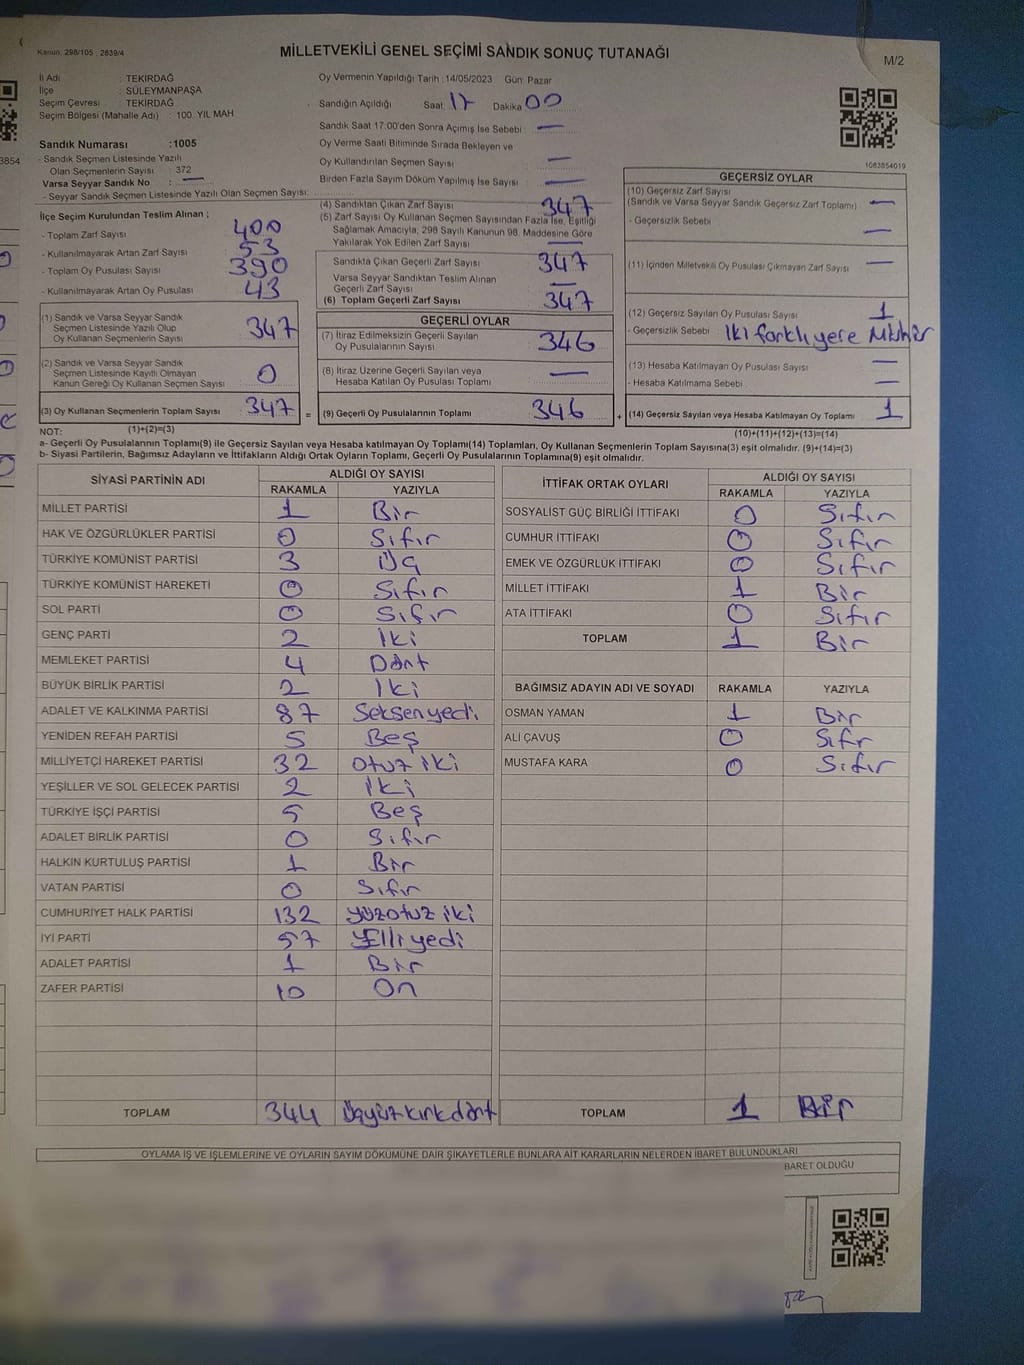 Kanun: 298/105 - 2839/4
MİLLETVEKİLİ GENEL SEÇİMİ SANDIK SONUÇ TUTANAĞI
M/2
İl Adı : TEKİRDAĞ
İlçe : SÜLEYMANPAŞA
Seçim Çevresi : TEKİRDAĞ
Seçim Bölgesi (Mahalle Adı) : 100. YIL MAH
Sandık Numarası :1005
- Sandık Seçmen Listesinde Yazılı
Olan Seçmenlerin Sayısı : 372
Varsa Seyyar Sandık No : —
- Seyyar Sandık Seçmen Listesinde Yazılı Olan Seçmen Sayısı:
Oy Vermenin Yapıldığı Tarih :14/05/2023 Gün: Pazar
Sandığın Açıldığı Saat 17 Dakika 00
Sandık Saat 17:00'den Sonra Açımış İse Sebebi : —
Oy Verme Saati Bitiminde Sırada Bekleyen ve
Oy Kullandırılan Seçmen Sayısı : —
Birden Fazla Sayım Döküm Yapılmış İse Sayısı : —
1083854019
3854
İlçe Seçim Kurulundan Teslim Alınan ;
- Toplam Zarf Sayısı : 400
- Kullanılmayarak Artan Zarf Sayısı : 53
- Toplam Oy Pusulası Sayısı : 390
- Kullanılmayarak Artan Oy Pusulası : 43
(1) Sandık ve Varsa Seyyar Sandık
Seçmen Listesinde Yazılı Olup
Oy Kullanan Seçmenlerin Sayısı : 347
(2) Sandık ve Varsa Seyyar Sandık
Seçmen Listesinde Kayıtlı Olmayan
Kanun Gereği Oy Kullanan Seçmen Sayısı : 0
(3) Oy Kullanan Seçmenlerin Toplam Sayısı : 347 =
(4) Sandıktan Çıkan Zarf Sayısı : 347
(5) Zarf Sayısı Oy Kullanan Seçmen Sayısından Fazla İse, Eşitliği
Sağlamak Amacıyla, 298 Sayılı Kanunun 98. Maddesine Göre
Yakılarak Yok Edilen Zarf Sayısı : —
Sandıkta Çıkan Geçerli Zarf Sayısı : 347
Varsa Seyyar Sandıktan Teslim Alınan
Geçerli Zarf Sayısı : —
(6) Toplam Geçerli Zarf Sayısı : 347
GEÇERLİ OYLAR
(7) İtiraz Edilmeksizin Geçerli Sayılan
Oy Pusulalarının Sayısı : 346
(8) İtiraz Üzerine Geçerli Sayılan veya
Hesaba Katılan Oy Pusulası Toplamı : —
(9) Geçerli Oy Pusulalarının Toplamı : 346 +
GEÇERSİZ OYLAR
(10) Geçersiz Zarf Sayısı
(Sandık ve Varsa Seyyar Sandık Geçersiz Zarf Toplamı) : —
- Geçersizlik Sebebi : —
(11) İçinden Milletvekili Oy Pusulası Çıkmayan Zarf Sayısı : —
(12) Geçersiz Sayılan Oy Pusulası Sayısı : 1
- Geçersizlik Sebebi : İki farklı yere Mühür
(13) Hesaba Katılmayan Oy Pusulası Sayısı : —
- Hesaba Katılmama Sebebi : —
(14) Geçersiz Sayılan veya Hesaba Katılmayan Oy Toplamı : 1
NOT: (1)+(2)=(3) (10)+(11)+(12)+(13)=(14)
a- Geçerli Oy Pusulalarının Toplamı(9) ile Geçersiz Sayılan veya Hesaba katılmayan Oy Toplamı(14) Toplamları, Oy Kullanan Seçmenlerin Toplam Sayısına(3) eşit olmalıdır. (9)+(14)=(3)
b- Siyasi Partilerin, Bağımsız Adayların ve İttifakların Aldığı Ortak Oyların Toplamı, Geçerli Oy Pusulalarının Toplamına(9) eşit olmalıdır.
SİYASİ PARTİNİN ADI ALDIĞI OY SAYISI
RAKAMLA YAZIYLA
MİLLET PARTİSİ 1 Bir
HAK VE ÖZGÜRLÜKLER PARTİSİ 0 Sıfır
TÜRKİYE KOMÜNİST PARTİSİ 3 Üç
TÜRKİYE KOMÜNİST HAREKETİ 0 Sıfır
SOL PARTİ 0 Sıfır
GENÇ PARTİ 2 İki
MEMLEKET PARTİSİ 4 Dört
BÜYÜK BİRLİK PARTİSİ 2 İki
ADALET VE KALKINMA PARTİSİ 87 Seksenyedi
YENİDEN REFAH PARTİSİ 5 Beş
MİLLİYETÇİ HAREKET PARTİSİ 32 Otuz iki
YEŞİLLER VE SOL GELECEK PARTİSİ 2 İki
TÜRKİYE İŞÇİ PARTİSİ 5 Beş
ADALET BİRLİK PARTİSİ 0 Sıfır
HALKIN KURTULUŞ PARTİSİ 1 Bir
VATAN PARTİSİ 0 Sıfır
CUMHURİYET HALK PARTİSİ 132 yüzotuz iki
İYİ PARTİ 57 Elli yedi
ADALET PARTİSİ 1 Bir
ZAFER PARTİSİ 10 On
TOPLAM 344 Üçyüzkırkdört
İTTİFAK ORTAK OYLARI ALDIĞI OY SAYISI
RAKAMLA YAZIYLA
SOSYALİST GÜÇ BİRLİĞİ İTTİFAKI 0 Sıfır
CUMHUR İTTİFAKI 0 Sıfır
EMEK VE ÖZGÜRLÜK İTTİFAKI 0 Sıfır
MİLLET İTTİFAKI 1 Bir
ATA İTTİFAKI 0 Sıfır
TOPLAM 1 Bir
BAĞIMSIZ ADAYIN ADI VE SOYADI RAKAMLA YAZIYLA
OSMAN YAMAN 1 Bir
ALİ ÇAVUŞ 0 Sıfr
MUSTAFA KARA 0 Sıfır
TOPLAM 1 Bir
OYLAMA İŞ VE İŞLEMLERİNE VE OYLARIN SAYIM DÖKÜMÜNE DAİR ŞİKAYETLERLE BUNLARA AİT KARARLARIN NELERDEN İBARET BULUNDUKLARI
BARET OLDUĞU